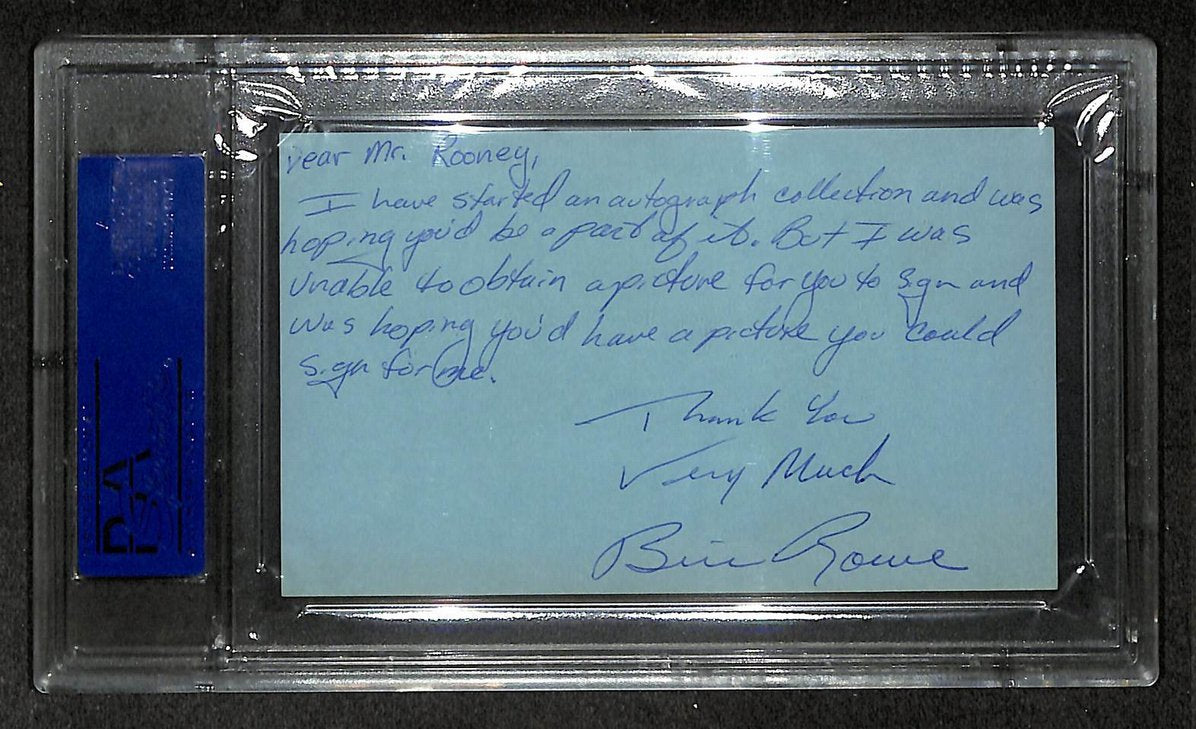 Dear Mr. Rooney,
I have started an autograph collection and was
hoping you'd be a part of it. But I was
unable to obtain a picture for you to sign and
was hoping you'd have a picture you could
sign for me.
Thank You
Very Much
Bill Rowe
PSA